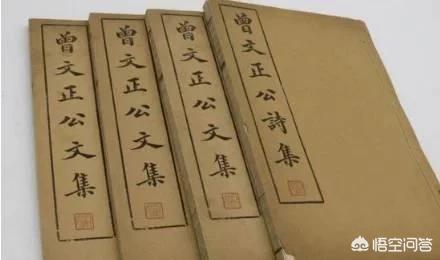 曾文正公文集
曾文正公文集
曾文正公文集
曾文正公詩集
悟空问答